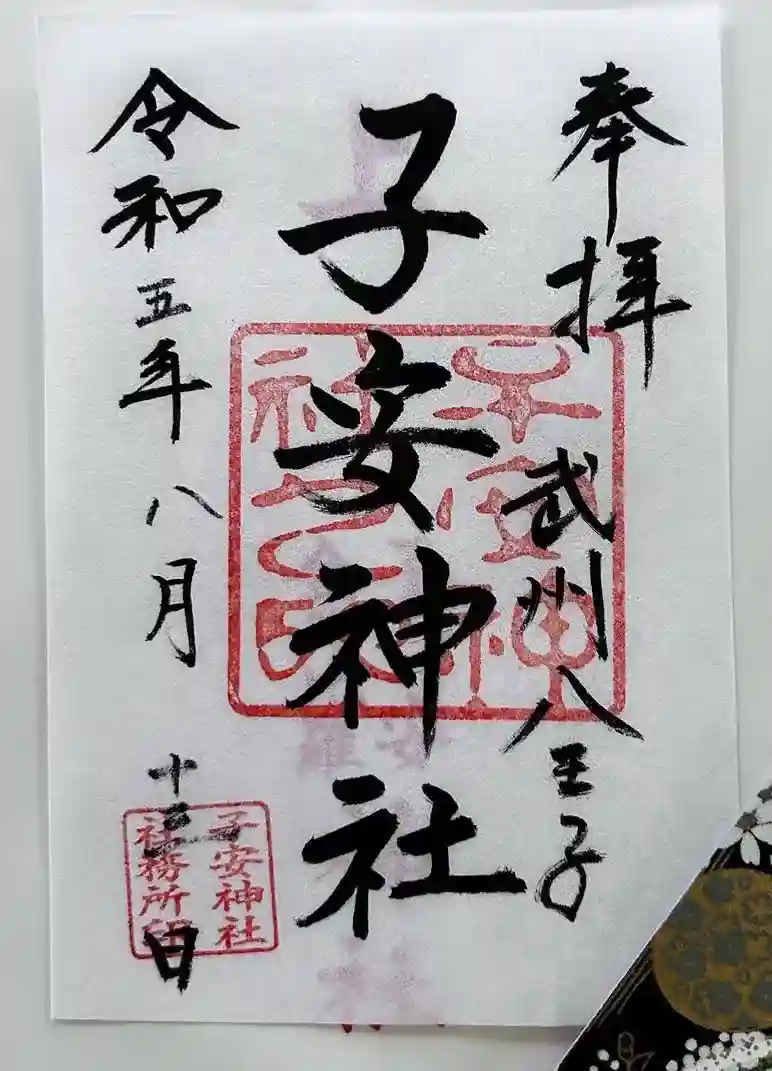 奉拝
武州八王子
子安神社
子安神社
令和五年八月十三日
子安神社
社務所印